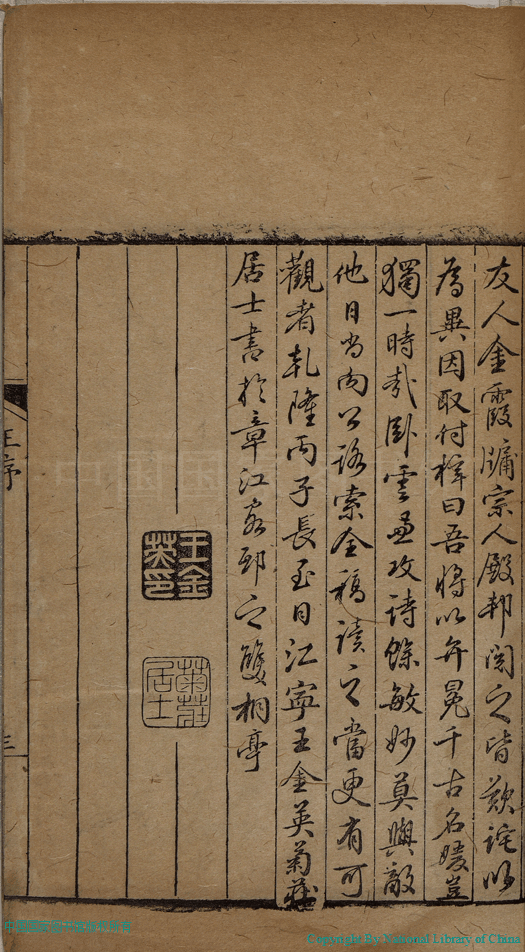 友人金霞牗宗人殿邦閱之皆歎詫以
為異因取付梓曰吾將以弁冕千古名媛豈
獨一時哉卧雲兼攻詩餘敏妙莫與敵
他日當向公路索全稿讀之當更有可
觀者乾隆丙子長至日江寧王金英菊莊
居士書於章江客邸之雙桐亭
王金英印
菊莊居士
王序
三
Copyright By National Library of China